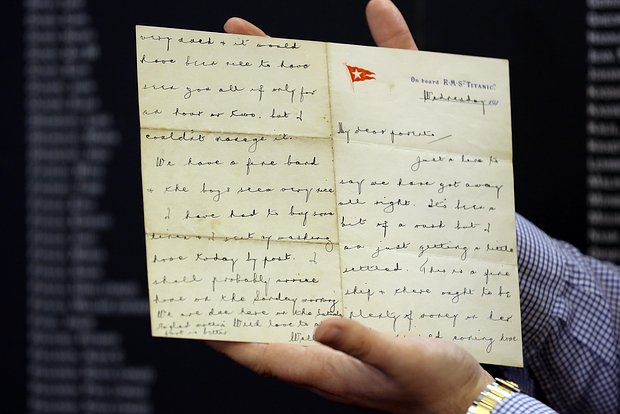 On board R·M·S· "TITANIC".
Wednesday 191
My dear parents
Just a line to
say we have got away
all right. It's been a
bit of a rush but I
am just getting a little
settled. This is a fine
ship & there ought to be
plenty of money on her
missed coming home
very much & it would
have been nice to have
seen you all if only for
an hour or two, but I
couldn't manage it.
We have a fine band
& the boys seem very nice
I have had to buy some
linen & I sent my washing
home today by post. I
shall probably arrive
home on the Sunday morning
We are due here on the
So glad mother's With love to a
foot is better.
Wall